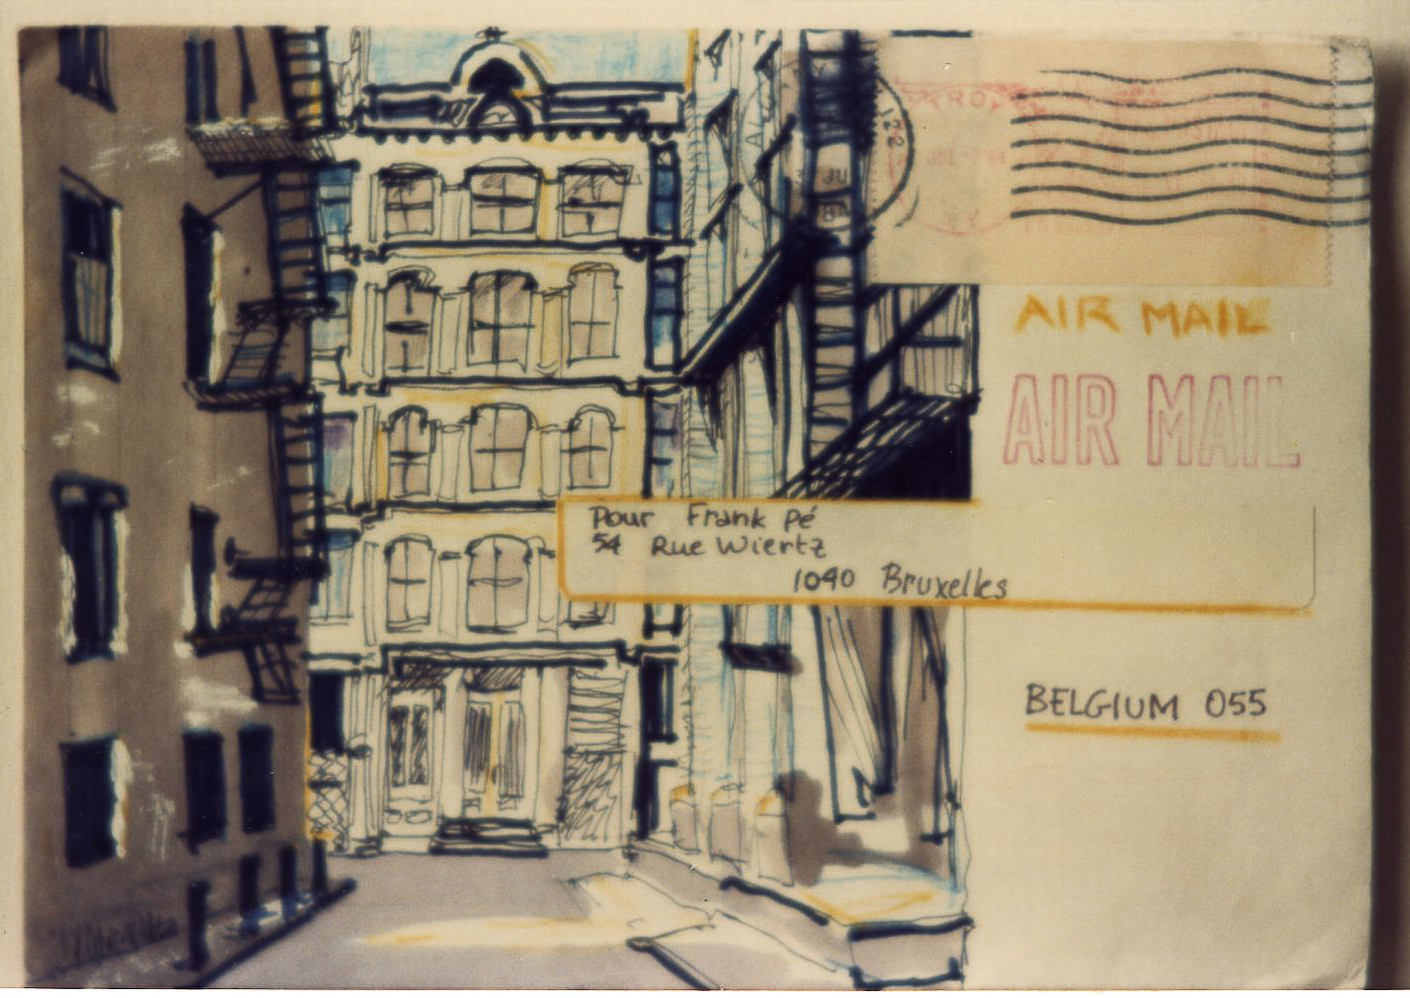 AIR MAIL
AIR MAIL
Pour Frank Pé
54 Rue Wiertz
1040 Bruxelles
BELGIUM 055